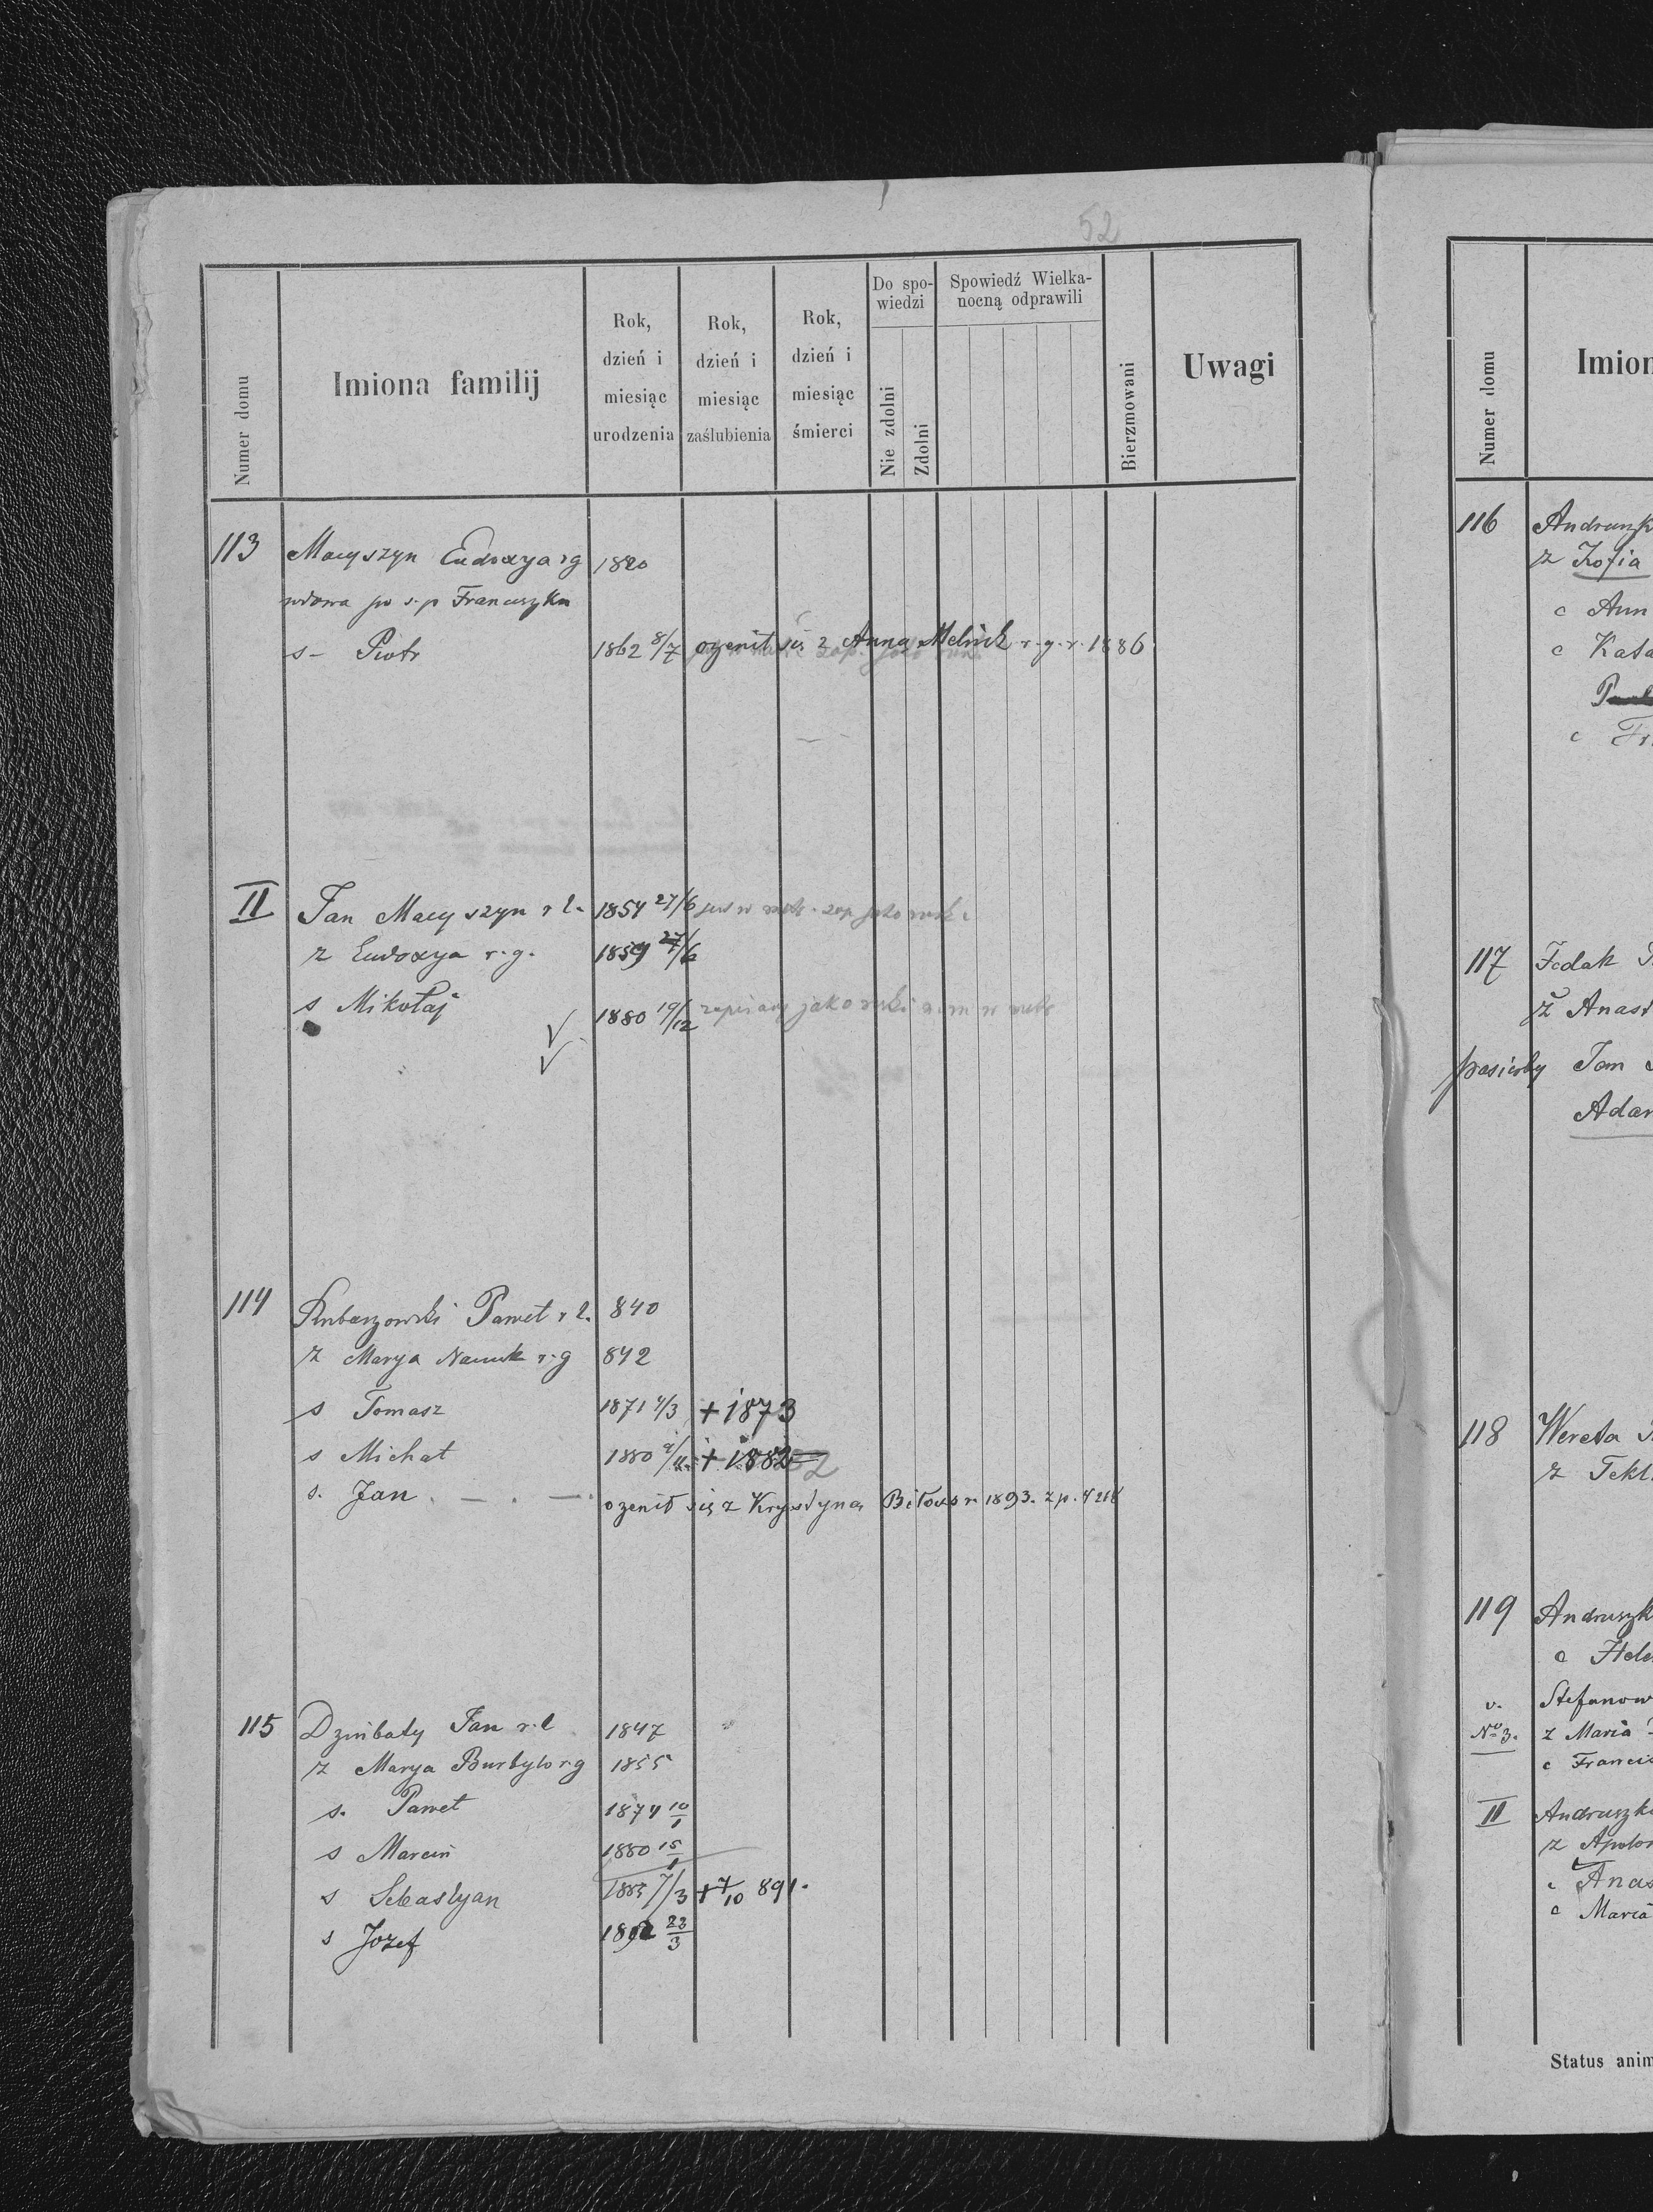 52
Numer domu
Imiona familij
Rok, dzień i miesiąc urodzenia
Rok, dzień i miesiąc zaślubienia
Rok, dzień i miesiąc śmierci
Do spowiedzi
Nie zdolni
Zdolni
Spowiedź Wielkanocną odprawili
Bierzmowani
Uwagi
113 Macyszyn Eudoxya rg 1820
wdowa po s.p Franciszku
s- Piotr 1862 8/7 ozenił się z Anną Melnick r.g.r. 1886
II Jan Macyszyn r l. 1854 27/6
z Eudoxya r.g. 1859 27/6
s Mikołaj 1880 19/12 zapisany jako
114 Paweł r l. 840
z Marya r.g 842
s Tomasz 1871 4/3 + 1873
s Michał 1880 + 1882
s. Jan . — . — . ozenił się z Krystyna Biłous r. 1893. z p.
115 Dzinbaty Jan r.l 1847
z Marya Burbylo rg 1855
s. Paweł 1874 10/1
s Marcin 1880 15/1
s Sebastyan 1885 7/3 + 7/10 891.
s Jozef 23/3
Numer domu
Imion
116 Andruszk
z Zofia
c Ann
c Kata
c Fr
117 Fedak
ż Anast
pasierby Jan
Adam
118 Wereta
z Tekl
119 Andruszk
c Hele
v. Stefanow
No 3. z Maria
c Francis
II Andruszk
z Apolon
c Anas
c Maria
Status anim